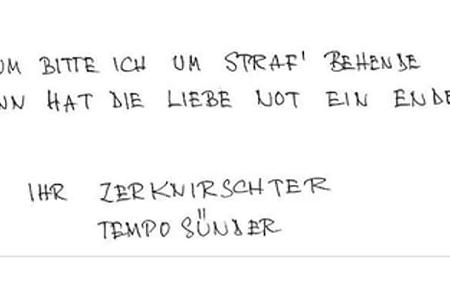 UM BITTE ICH UM STRAF' BEHENDE
NN HAT DIE LIEBE NOT EIN ENDE
IHR ZERKNIRSCHTER
TEMPO SÜNDER